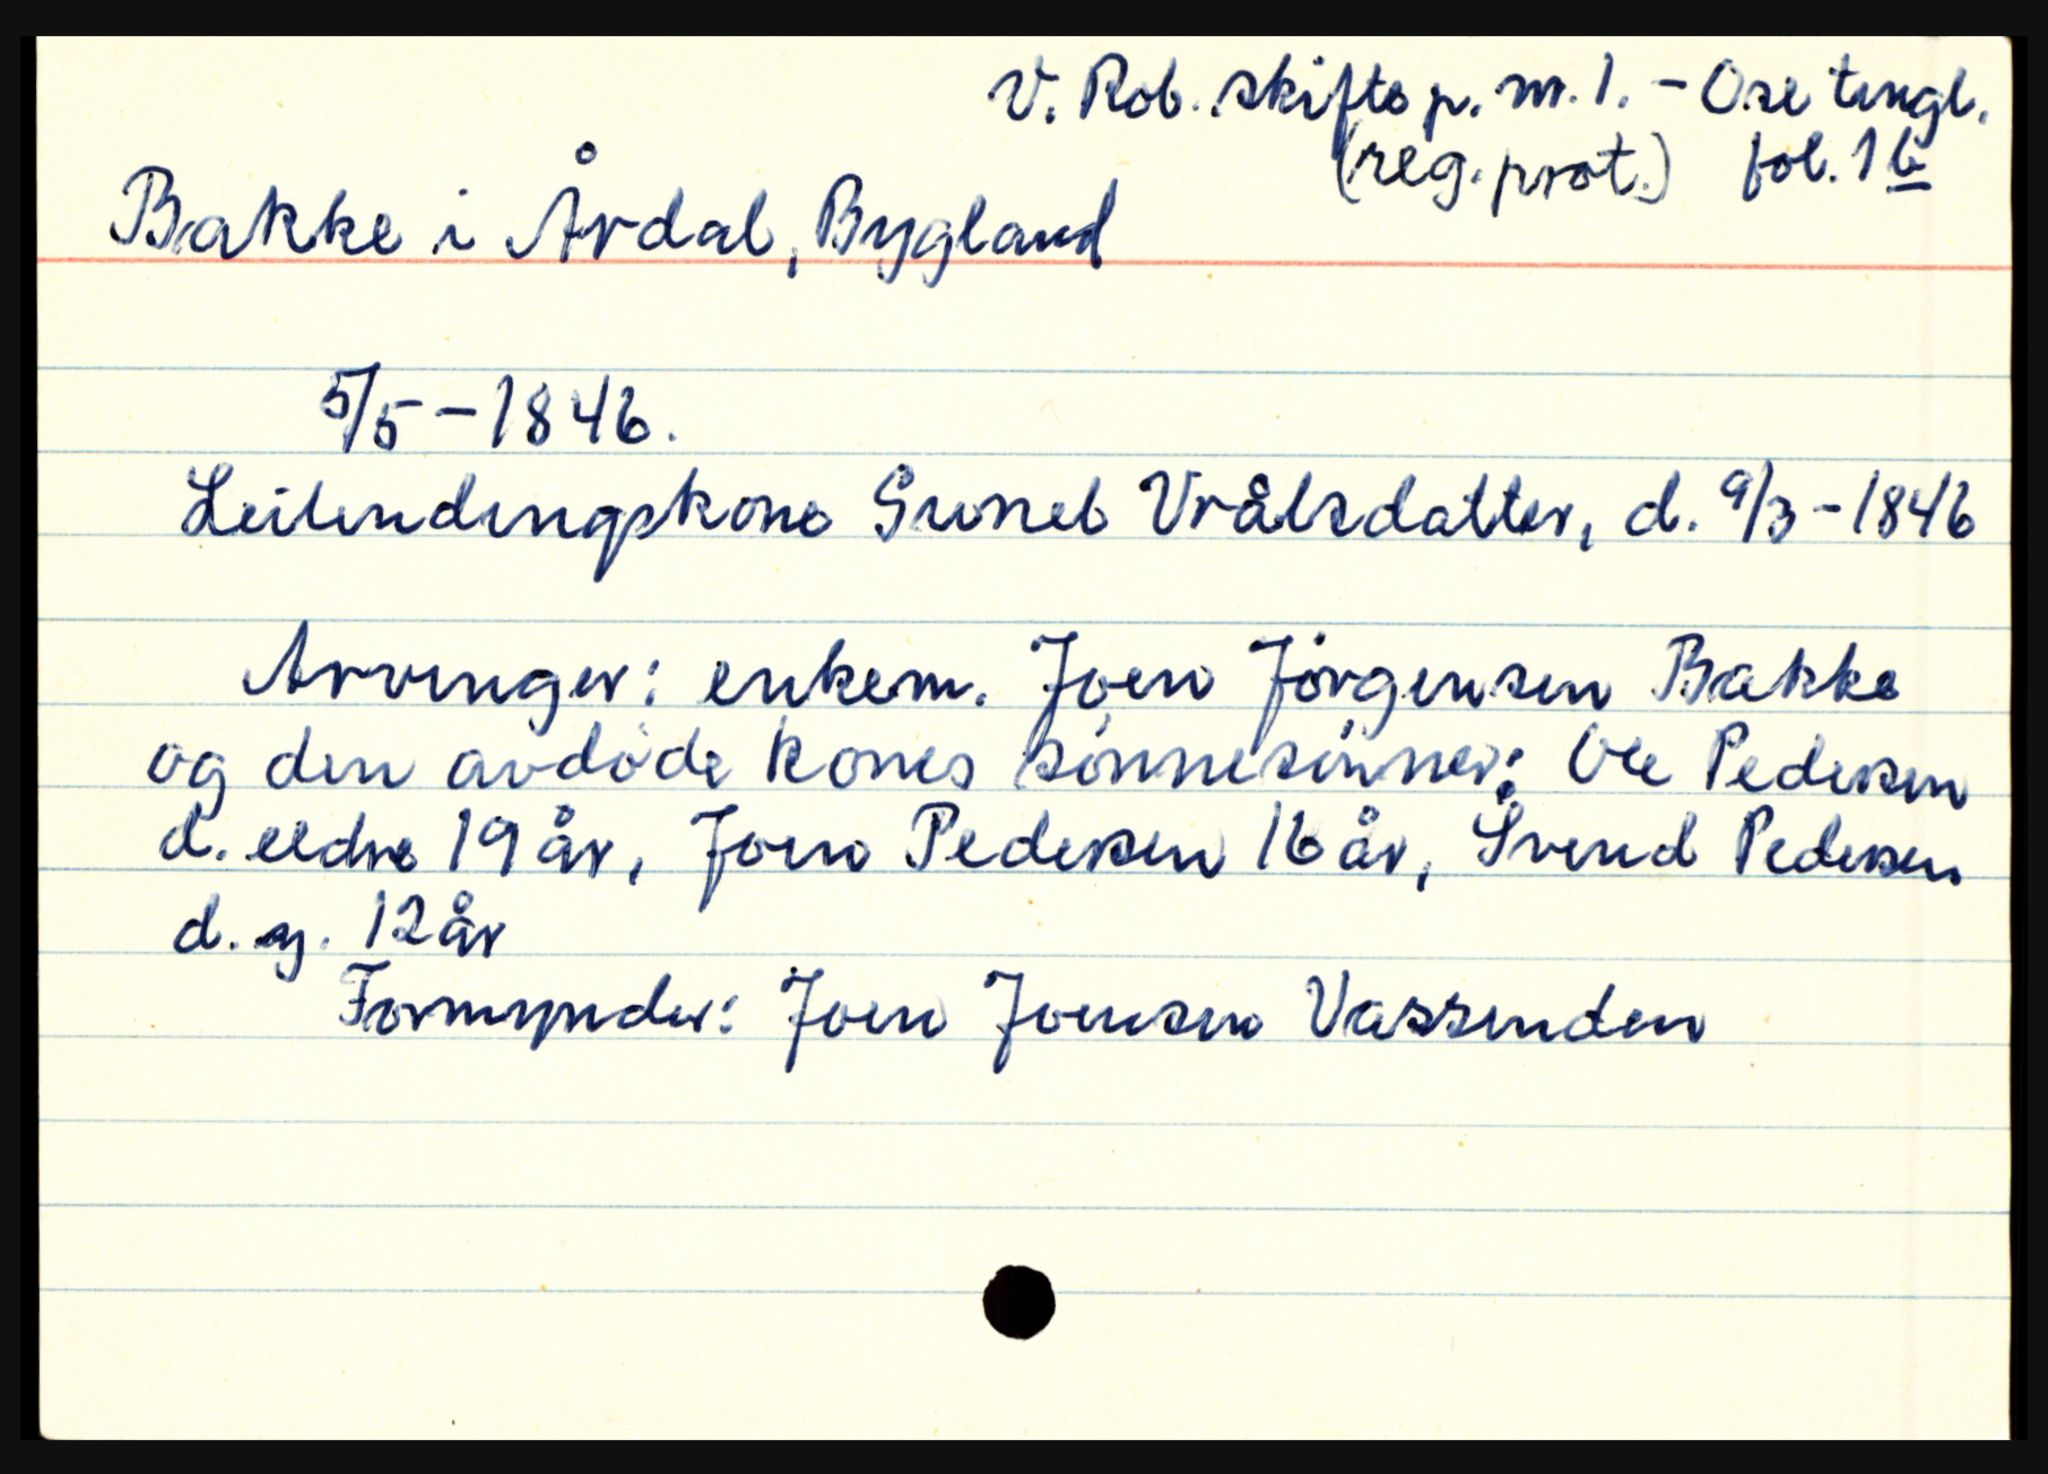 V. Rob. skiftep. nr. 1. - Ose tingl.
(reg. prot.) fol. 1 b
Bakke i Årdal, Bygland
5/5 - 1846.
Leilendingskone Gunel Vrålsdatter, d. 9/3 - 1846
Arvinger: enkem. Joen Jörgensen Bakke
og den avdöde kones sönnesönner: Ole Pedersen
d. eldre 19 år, Joen Pedersen 16 år, Svend Pedersen
d. y. 12 år
Formynder: Joen Joensen Vassenden